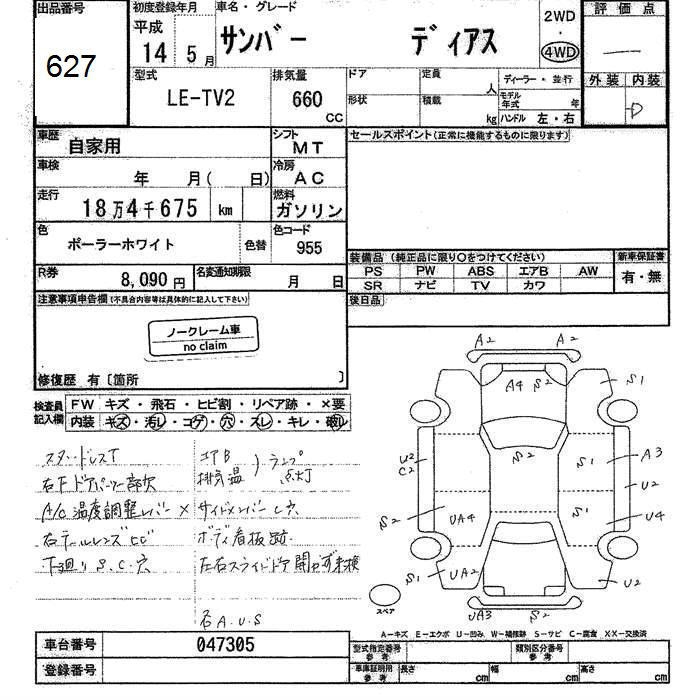 出品番号
627
初度登録年月
平成
14 5 月
車名・グレード
サンバー ディアス
2WD
・
4WD
評価点
外装 内装
D
型式
LE-TV2
排気量
660
CC
ドア
形状
定員
人
積載
kg
ディーラー・並行
モデル
年式 年
ハンドル 左・右
車歴
自家用
シフト
MT
車検
年 月( 日)
冷房
AC
走行
18万4千675 km
燃料
ガソリン
色
ポーラーホワイト
色替
色コード
955
R券
8,090円
名変通知期限
月 日
セールスポイント(正常に機能するものに限ります)
装備品(純正品に限り○をつけてください)
PS PW ABS エアB AW
SR ナビ TV カワ
新車保証書
有・無
後日品
注意事項申告欄(不具合内容等は具体的に記入して下さい)
ノークレーム車
no claim
修復歴 有〔箇所 〕
検査員
記入欄
FW キズ・飛石・ヒビ割・リペア跡・×要
内装 キズ・汚レ・コゲ・穴・スレ・キレ・破レ
スタッドレスT
右Fドアバイザー部欠
A/C温度調整レバー×
右テールレンズヒビ
下廻りS.C.穴
エアB
排気温
ランプ
点灯
サイドメンバーし穴
ボディ看板跡
左右スライドドア開かず未検
右A.U.S
A2 A2
A4 S2
S1
U2
C2
S2
S1
A3
U2
S2
UA4
S1
U4
S1
UA2
U2
スペア
UA3 S2
A-キズ E-エクボ U-凹み W-補修跡 S-サビ C-腐食 XX-交換済
車台番号
047305
登録番号
型式指定番号
参考
類別区分番号
参考
車庫証明用
参考
長さ cm
幅 cm
高さ cm